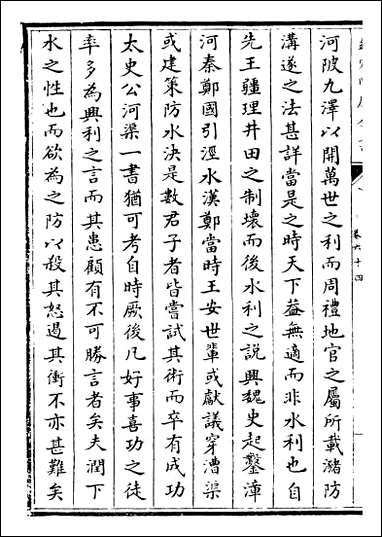 卷六十四
河陂九澤以開萬世之利而周禮地官之屬所載瀦防
溝遂之法甚詳當是之時天下葢無適而非水利也自
先王疆理井田之制壞而後水利之説興魏史起鑿漳
河秦鄭國引涇水漢鄭當時王安世輩或獻議穿漕渠
或建策防水決是數君子者皆嘗試其術而卒有成功
太史公河渠一書猶可考自時厥後凡好事喜功之徒
率多為興利之言而其患顧有不可勝言者矣夫潤下
水之性也而欲為之防以殺其怒遏其衝不亦甚難矣